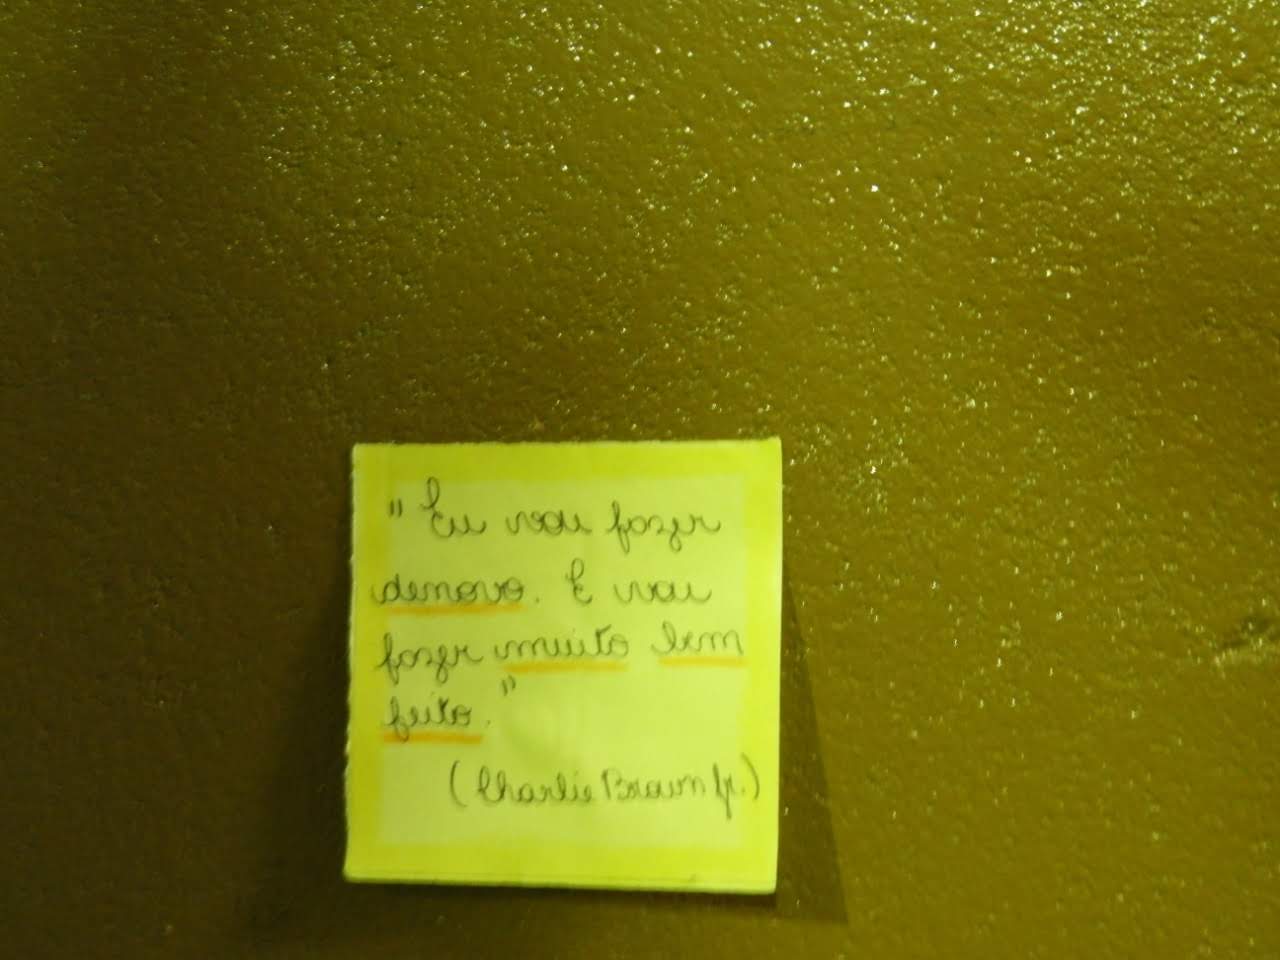 "Eu vou fazer
denovo. E vou
fazer muito bem
feito."
(Charlie Brown Jr.)